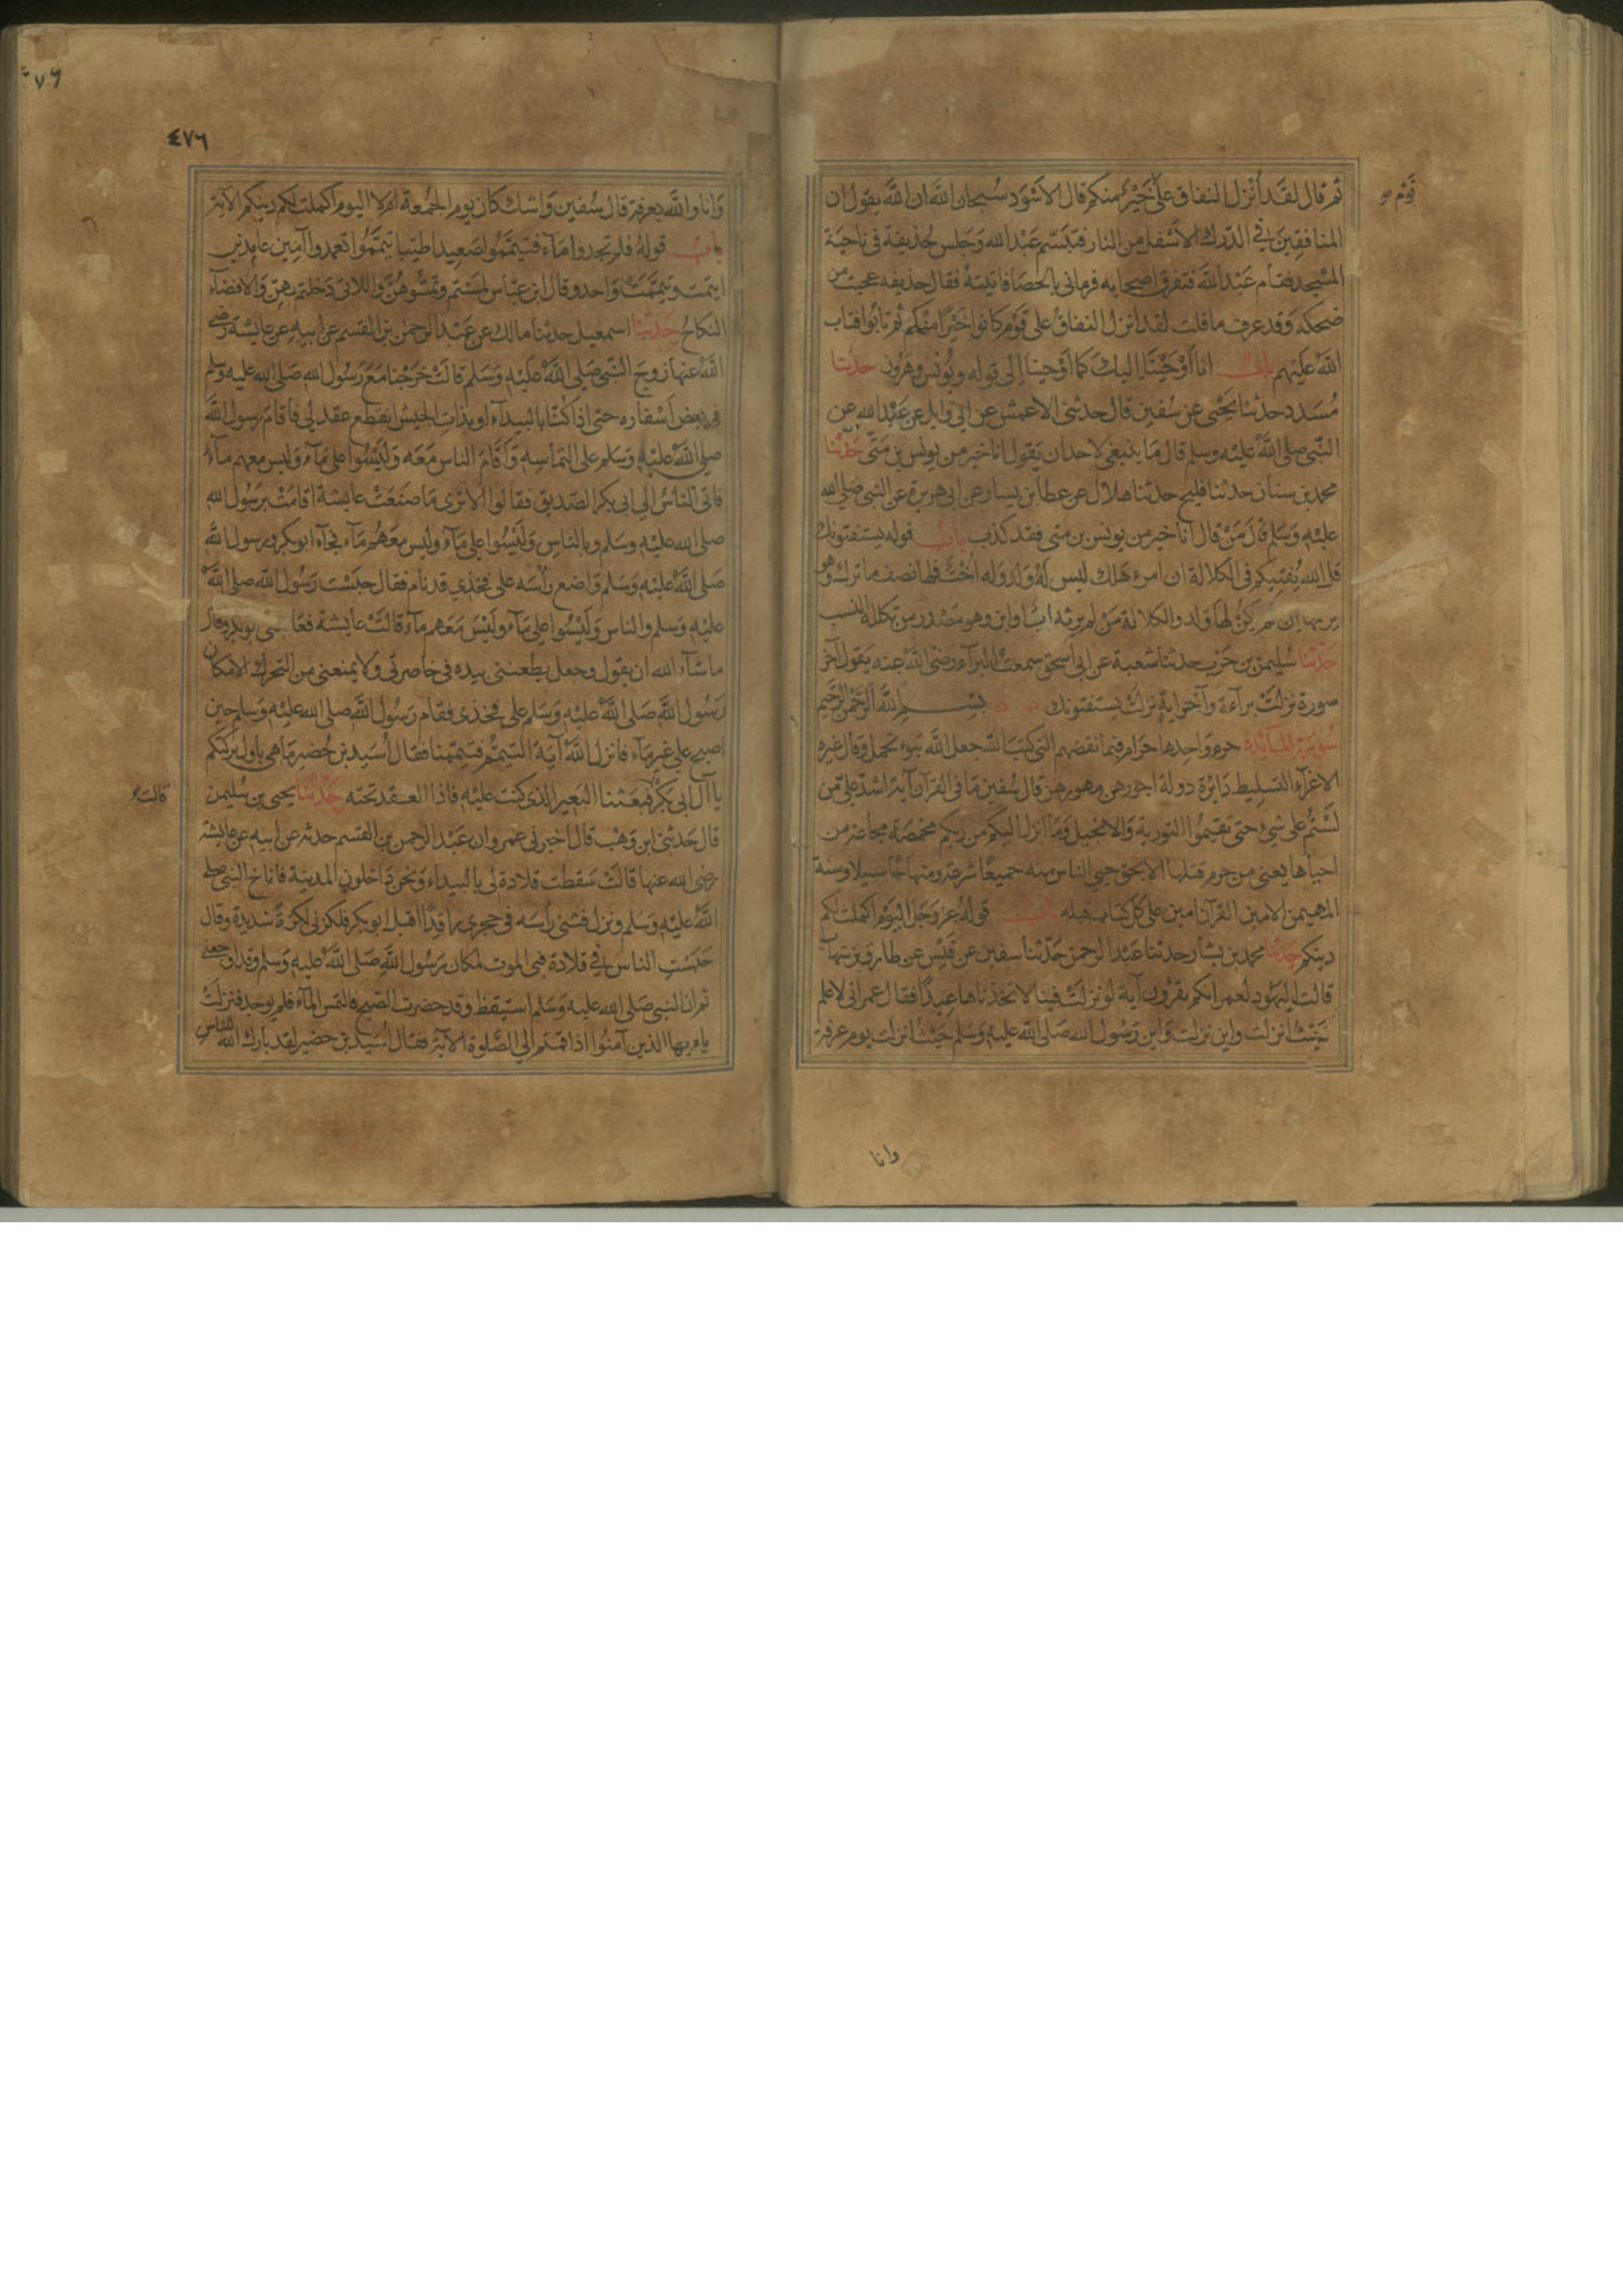 قوم صح
ثم قال لقد أنزل النفاق على خير منكم قال الاسود سبحان الله ان الله يقول ان
المنافقين في الدرك الاسفل من النار فتبسم عبد الله وجلس حذيفة في ناحية
المسجد فقام عبد الله فتفرق اصحابه فرماني بالحصا فاتيته فقال حذيفة عجبت من
ضحكه وقد عرف ما قلت لقد انزل النفاق على قوم كانوا خيرا منكم ثم تابوا فتاب
الله عليهم باب انا أوحينا اليك كما أوحينا الى قوله ويونس وهرون حدثنا
مسدد حدثنا يحيى عن سفين قال حدثني الاعمش عن ابي وايل عن عبد الله عن
النبي صلى الله عليه وسلم قال ما ينبغي لاحد ان يقول انا خير من يونس بن متى حدثنا
محمد بن سنان حدثنا فليح حدثنا هلال عن عطا بن يسار عن ابي هريرة عن النبي صلى الله
عليه وسلم قال من قال انا خير من يونس بن متى فقد كذب باب قوله يستفتونك
قل الله يفتيكم في الكلالة ان امرء هلك ليس له ولد وله اخت فلها نصف ما ترك وهو
يرثها ان لم يكن لها ولد والكلالة من لم يرثه اب او ابن وهو مصدر من تكلله النسب
حدثنا سليمن بن حرب حدثنا شعبة عن ابي اسحق سمعت البرآء رضي الله عنه يقول آخر
سورة نزلت برآءة وآخر اية نزلت يستفتونك بسم الله الرحمن الرحيم
سورة المائدة حرم واحدها حرام فبما نقضهم التي كتب الله جعل الله تبوء تحمل وقال غيره
الاغرآء التسليط دايرة دولة اجورهن مهورهن قال سفين ما في القرآن آية اشد علي من
لستم على شيء حتى تقيموا التورية والانجيل وما انزل اليكم من ربكم مخمصة مجاعة من
احياها يعني من حرم قتلها الا بحق حيي الناس منه جميعا شرعة ومنهاجا سبيلا وسنة
المهيمن الامين القرآن امين على كل كتاب قبله باب قوله عز وجل اليوم اكملت لكم
دينكم حدثنا محمد بن بشار حدثنا عبد الرحمن حدثنا سفين عن قيس عن طارق بن شهاب
قالت اليهود لعمر انكم تقرؤن آية لو نزلت فينا لاتخذناها عيدا فقال عمر اني لاعلم
حيث انزلت واين نزلت واين رسول الله صلى الله عليه وسلم حيث انزلت يوم عرفة
وانا
٤٧٦
وانا والله بعرفة قال سفين واشك كان يوم الجمعة ام لا اليوم اكملت لكم دينكم الآية
باب قوله فلم تجدوا مآء فتيمموا صعيدا طيبا تيمموا تعمدوا آمين عامدين
اممت وتيممت واحد وقال ابن عباس لمستم وتمسوهن واللاتي دخلتم بهن والافضآء
النكاح حدثنا اسمعيل حدثنا مالك عن عبد الرحمن بن القسم عن ابيه عن عايشة رضي
الله عنها زوج النبي صلى الله عليه وسلم قالت خرجنا مع رسول الله صلى الله عليه وسلم
في بعض اسفاره حتى اذا كنا بالبيدآء او بذات الجيش انقطع عقد لي فاقام رسول الله
صلى الله عليه وسلم على التماسه واقام الناس معه وليسوا على مآء وليس معهم مآء
فاتى الناس الى ابي بكر الصديق فقالوا الا ترى ما صنعت عايشة اقامت برسول الله
صلى الله عليه وسلم وبالناس وليسوا على مآء وليس معهم مآء فجآء ابو بكر ورسول الله
صلى الله عليه وسلم واضع رأسه على فخذي قد نام فقال حبست رسول الله صلى الله
عليه وسلم والناس وليسوا على مآء وليس معهم مآء قالت عايشة فعاتبني ابو بكر وقال
ما شآء الله ان يقول وجعل يطعنني بيده في خاصرتي ولا يمنعني من التحرك الا مكان
رسول الله صلى الله عليه وسلم على فخذي فقام رسول الله صلى الله عليه وسلم حين
اصبح على غير مآء فانزل الله آية التيمم فتيممنا فقال أسيد بن حضير ما هي باول بركتكم
يا آل ابي بكر فبعثنا البعير الذي كنت عليه فاذا العقد تحته حدثنا يحيى بن سليمن
قالت
قال حدثني ابن وهب قال اخبرني عمرو ان عبد الرحمن بن القسم حدثه عن ابيه عن عايشة
رضي الله عنها قالت سقطت قلادة لي بالبيداء ونحن داخلون المدينة فاناخ النبي صلى
الله عليه وسلم ونزل فثنى رأسه في حجري راقدا اقبل ابو بكر فلكزني لكزة شديدة وقال
حبست الناس في قلادة فبي الموت لمكان رسول الله صلى الله عليه وسلم وقد اوجعني
ثم ان النبي صلى الله عليه وسلم استيقظ وقد حضرت الصبح فالتمس المآء فلم يوجد فنزلت
يا ايها الذين آمنوا اذا قمتم الى الصلوة الآية فقال أسيد بن حضير لقد بارك الله للناس